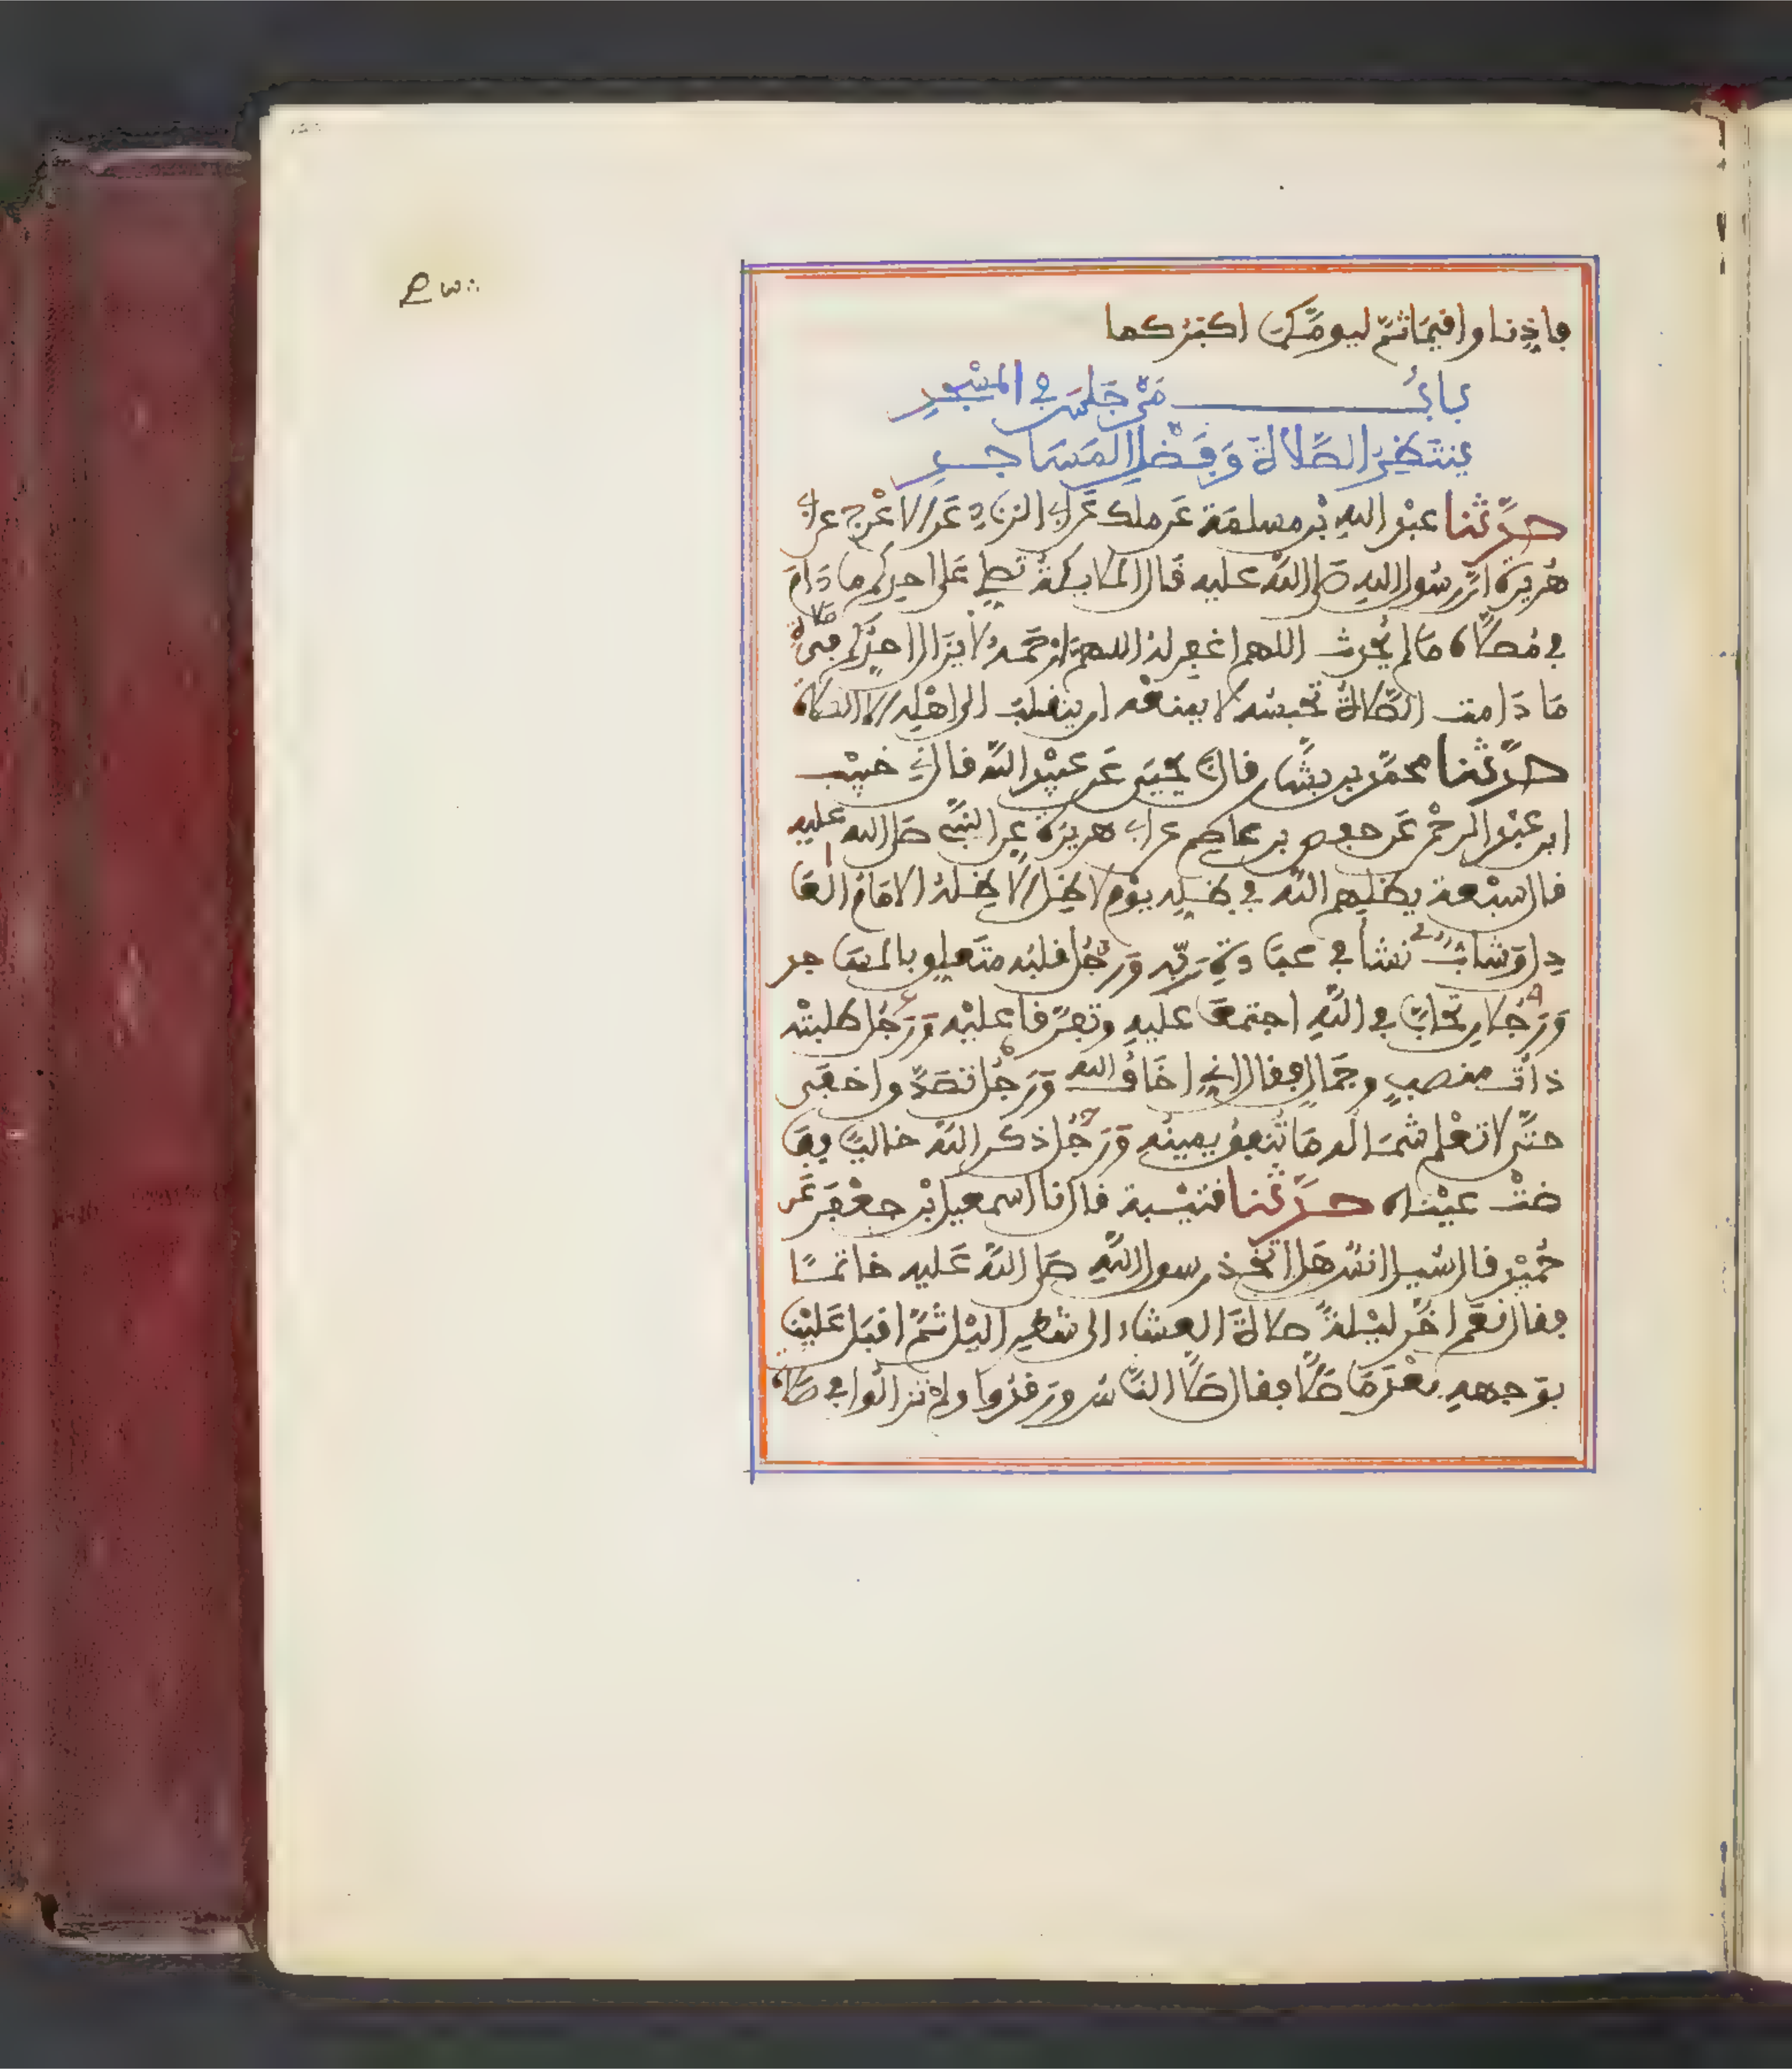 فاذنا واقيما ثم ليومكما اكبركما
باب من جلس في المسجد
ينتظر الصلاة وفضل المساجد
حدثنا عبد الله بن مسلمة عن ملك عن ابي الزناد عن الاعرج عن ابي
هريرة ان رسول الله صلى الله عليه قال الملايكة تصلي على احدكم ما دام
في مصلاه ما لم يحدث اللهم اغفر له اللهم ارحمه لا يزال احدكم في صلاة
ما دامت الصلاة تحبسه لا يمنعه ان ينقلب الى اهله الا الصلاة
حدثنا محمد بن بشار قال نا يحيى عن عبيد الله قال ني خبيب
ابن عبد الرحمن عن حفص بن عاصم عن ابي هريرة عن النبي صلى الله عليه
قال سبعة يظلهم الله في ظله يوم لا ظل الا ظله الامام العا
دل وشاب نشأ في عبادة ربه ورجل قلبه متعلق بالمساجد
ورجلان تحابا في الله اجتمعا عليه وتفرقا عليه ورجل طلبته
ذات منصب وجمال فقال اني اخاف الله ورجل تصدق واخفى
حتى لا تعلم شماله ما تنفق يمينه ورجل ذكر الله خاليا ففا
ضت عيناه حدثنا قتيبة قال نا اسمعيل بن جعفر عن
حميد قال سيل انس هل اتخذ رسول الله صلى الله عليه خاتما
فقال نعم اخر ليلة صلاة العشاء الى شطر اليل ثم اقبل علينا
بوجهه بعد ما صلى فقال صلى الناس ورقدوا ولم تزالوا في صلاة